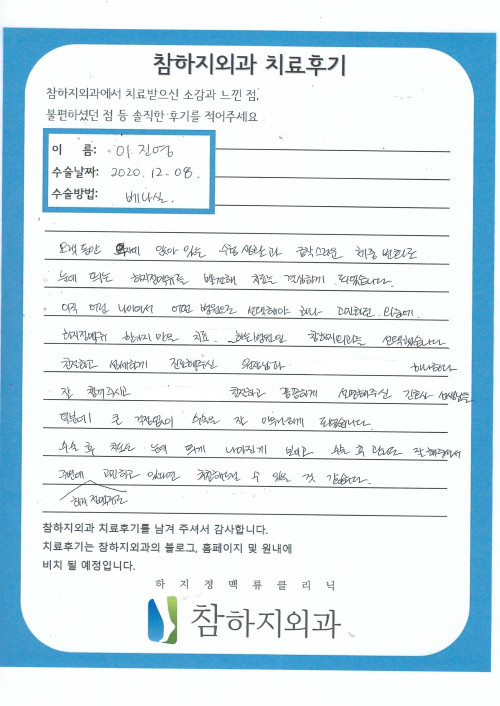 참하지외과 치료후기
참하지외과에서 치료받으신 소감과 느낀 점,
불편하셨던 점 등 솔직한 후기를 적어주세요
이 름: 이진영
수술날짜: 2020. 12. 08.
수술방법: 베나실.
오랫동안 앉아 있는 생활과 갑작스러운 체중 변화로
눈에 띄는 하지정맥류를 발견해 치료를 결심하게 되었습니다.
아직 어린 나이여서 어떤 병원으로 선택해야 하나 고민하던 와중에
하지정맥류 한가지만을 치료 하는 병원인 참하지외과를 선택했습니다
친절하고 섬세하게 진료해주신 원장님과 하나하나
잘 챙겨주시고 친절하고 꼼꼼하게 설명해주신 간호사 선생님들
덕분에 큰 걱정없이 수술을 잘 마무리하게 되었습니다.
수술 후 치료도 눈에 띄게 나아진게 보이고 수술 후 관리도 잘 해주셔서
주변에 고민하고 있다면 추천해줄 수 있을 것 같습니다.
하지정맥류로
참하지외과 치료후기를 남겨 주셔서 감사합니다.
치료후기는 참하지외과의 블로그, 홈페이지 및 원내에
비치 될 예정입니다.
하지정맥류클리닉
참하지외과